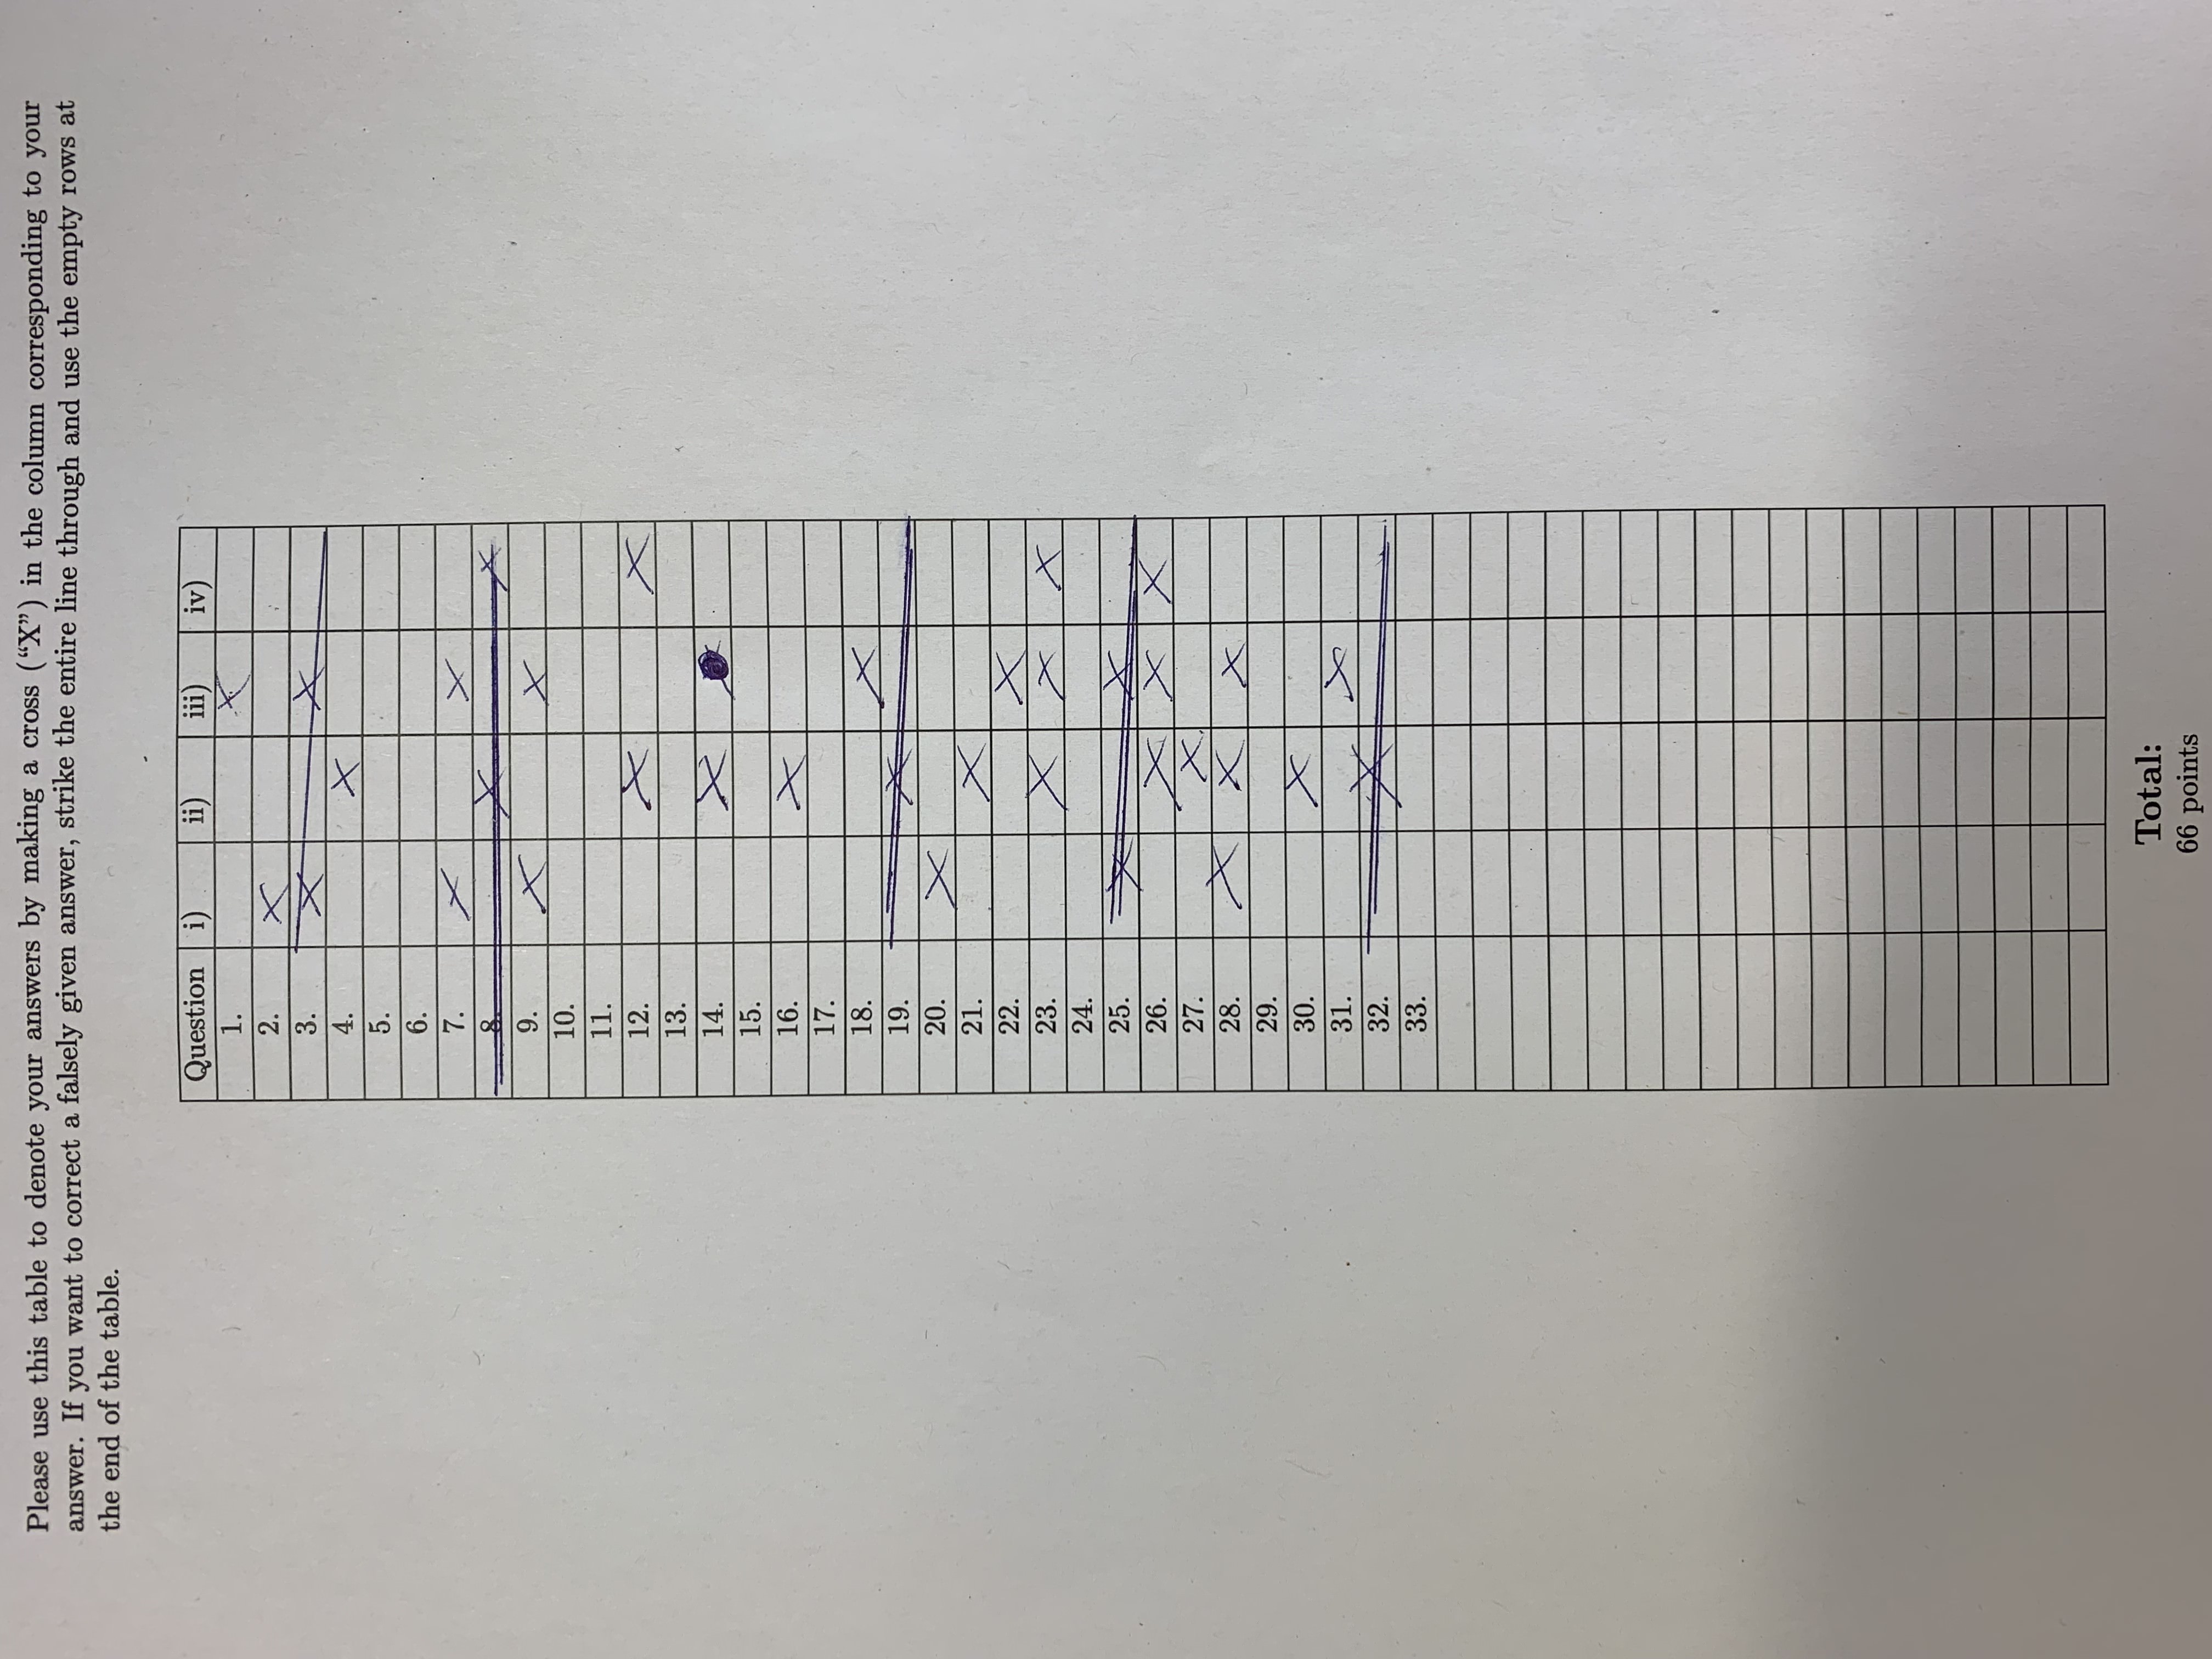 Please use this table to denote your answers by making a cross (“X”) in the column corresponding to your
answer. If you want to correct a falsely given answer, strike the entire line through and use the empty rows at
the end of the table.
Question i) ii) iii) iv)
1. X
2. X
3. X X
4. X
5.
6.
7. X X
8. X X
9. X X
10.
11.
12. X X
13.
14. X
15.
16. X
17.
18. X
19. X
20. X
21. X
22. X
23. X X X
24.
25. X X
26. X X X
27. X
28. X X X
29.
30. X
31. X
32. X
33.
Total:
66 points